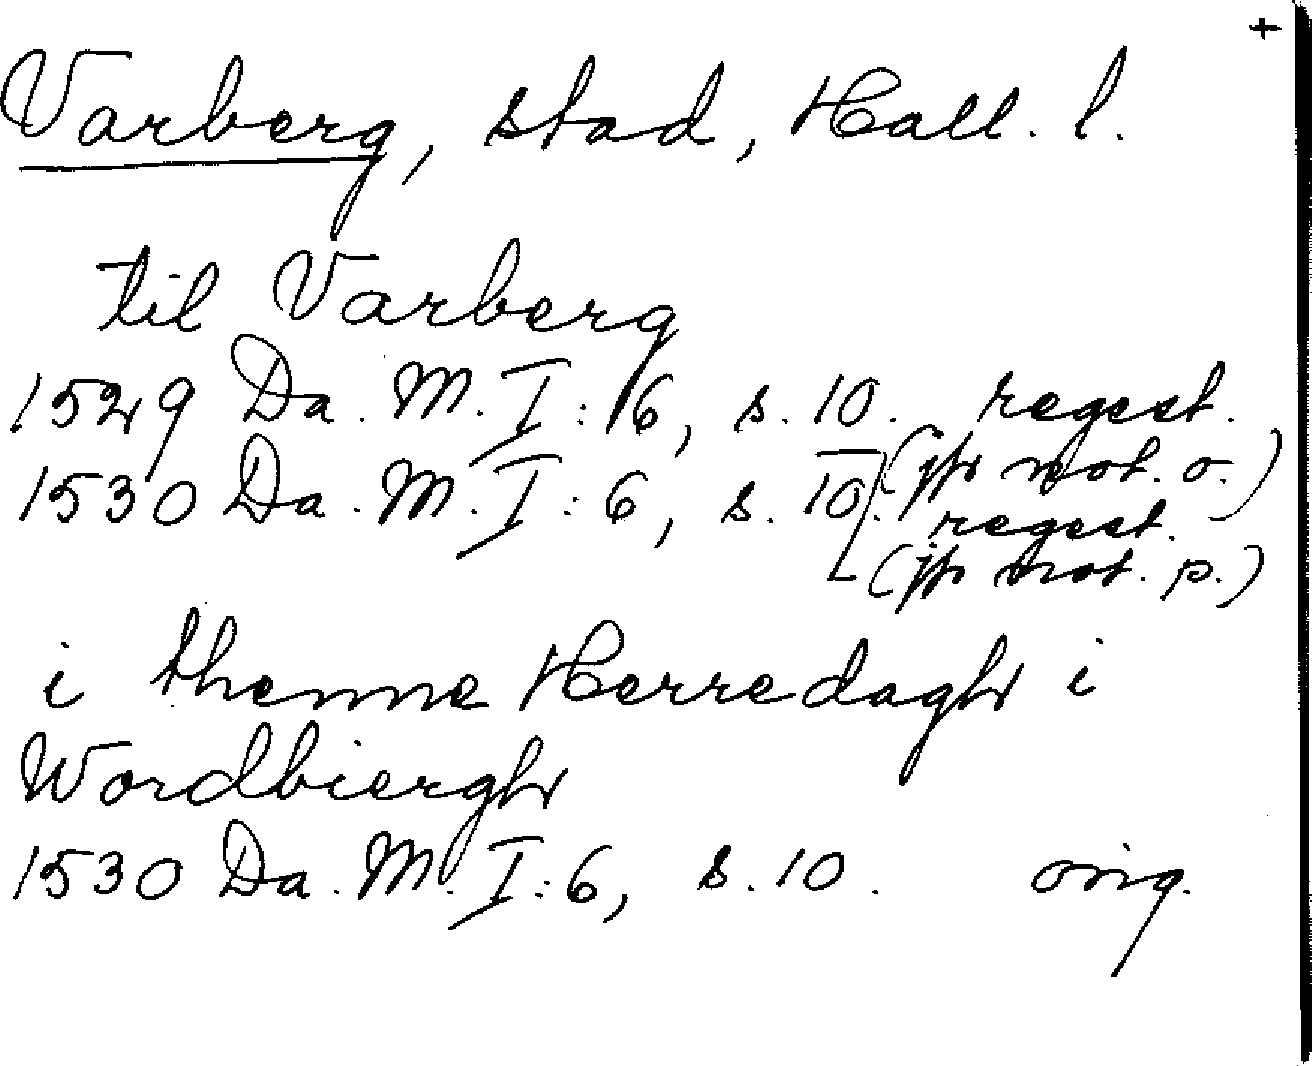 +
Varberg, stad, Hall. l.
til Varberg
1529 Da. M. I: 6, s. 10. regest.
(jfr not. o.)
1530 Da. M. I: 6, s. 10. regest.
(jfr not. p.)
i thenne Herredagh i
Wordbiergh
1530 Da. M. I: 6, s. 10. orig.